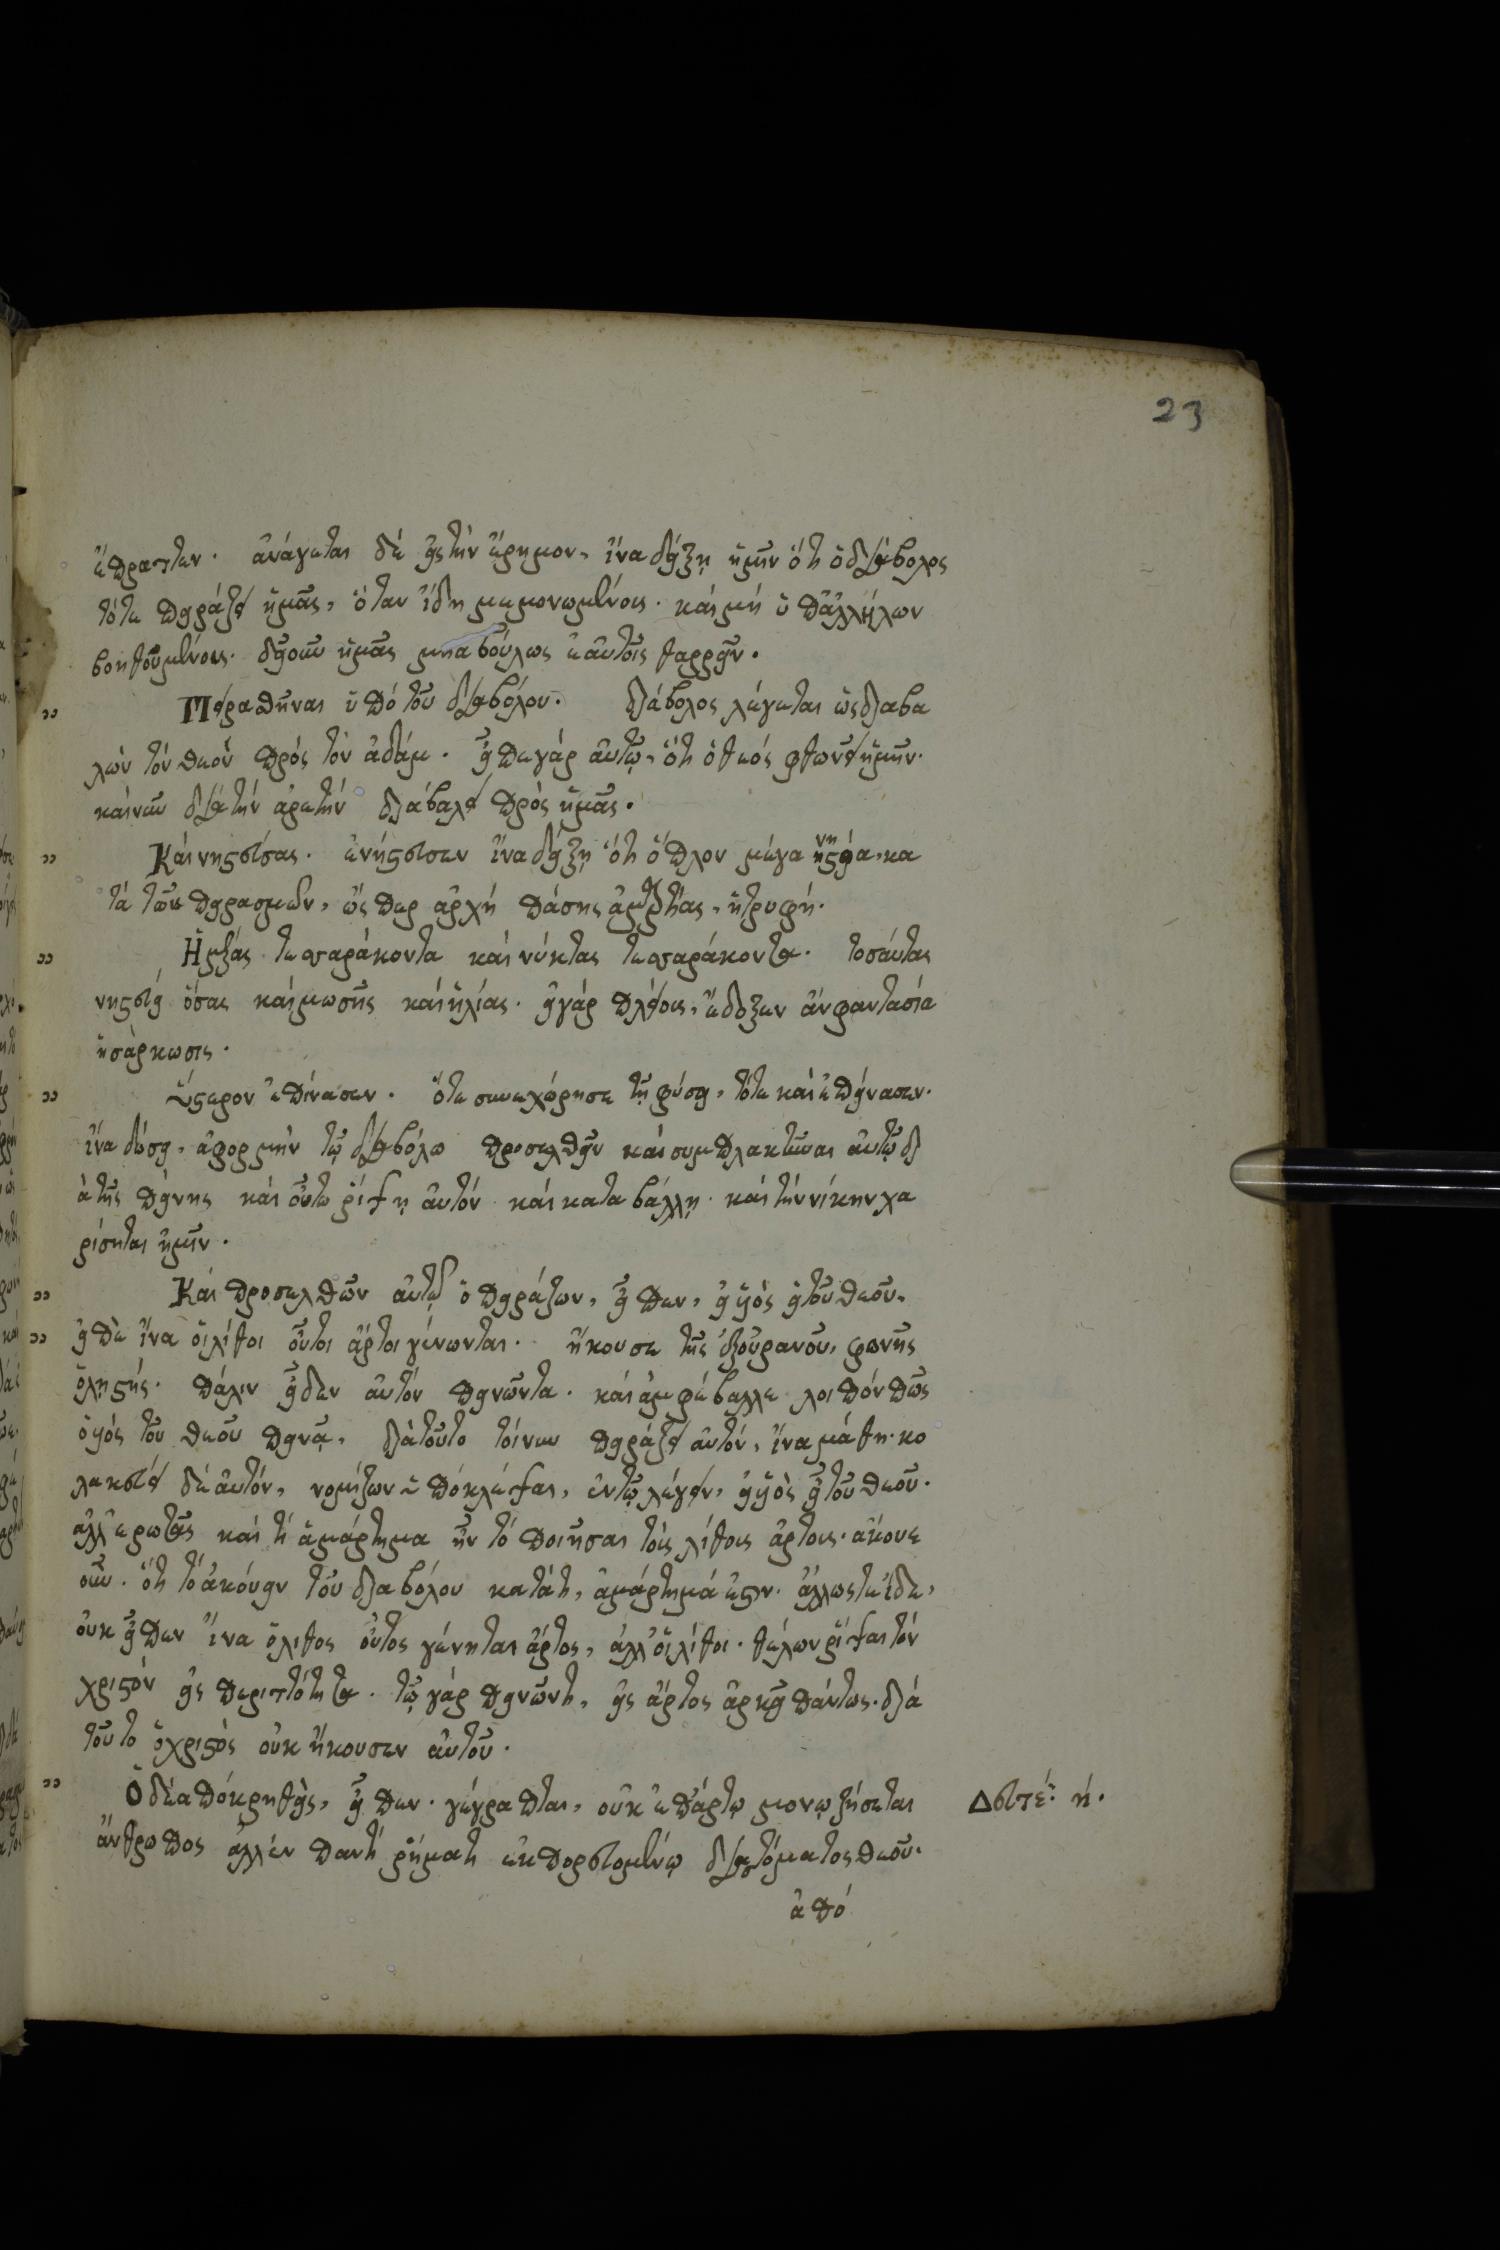 23
ἔπραττεν. ἀνάγεται δὲ εἰς τὴν ἔρημον, ἵνα δείξῃ ἡμῖν ὅτι ὁ διάβολος
τότε πειράζει ἡμᾶς, ὅταν ἴδη μεμονωμένους. καὶ μὴ ὑπ' ἀλλήλων
βοηθουμένους. δεῖ οὖν ἡμᾶς μὴ ἀβούλως ἑαυτοῖς θαρρεῖν.
Πειρασθῆναι ὑπὸ τοῦ διαβόλου. διάβολος λέγεται ὡς διαβα
λὼν τὸν θεὸν πρὸς τὸν ἀδάμ. εἶπε γὰρ αὐτῷ, ὅτι ὁ θεὸς φθωνεῖ ἡμῖν.
καὶ νῦν διὰ τὴν ἀρετὴν διαβάλει πρὸς ἡμᾶς.
Καὶ νηστεύσας. ἐνήστευσεν ἵνα δείξῃ ὅτι ὅπλον μέγα ἡ νηστεία, κα
τὰ τῶν πειρασμῶν, ὥσπερ ἀρχὴ πάσης ἁμαρτίας, ἡ τρυφή.
Ἡμέρας τεσσαράκοντα καὶ νύκτας τεσσαράκοντα. τοσαύτας
νηστεύει ὅσας καὶ μωσῆς καὶ ἡλίας. εἰ γὰρ πλείους, ἔδοξεν ἂν φαντασία
ἡ σάρκωσις.
Ὕστερον ἐπείνασεν. ὅτε συνεχώρησε τῇ φύσει, τότε καὶ ἐπείνασεν.
ἵνα δώσῃ ἀφορμὴν τῷ διαβόλω προσελθεῖν καὶ συμπλακῆναι αὐτῷ δι
ὰ τῆς πείνης καὶ οὕτω ῥίψῃ αὐτὸν καὶ καταβάλλῃ. καὶ τὴν νίκην χα
ρίσηται ἡμῖν.
Καὶ προσελθὼν αὐτῷ ὁ πειράζων, εἶπεν, εἰ υἱὸς εἶ τοῦ θεοῦ,
εἰπὲ ἵνα οἱ λίθοι οὗτοι ἄρτοι γένωνται. ἤκουσε τῆς ἐξ οὐρανοῦ, φωνῆς
ὁ λῃστής. πάλιν εἶδεν αὐτὸν πεινῶντα. καὶ ἀμφέβαλλε λοιπὸν πῶς
ὁ υἱὸς τοῦ θεοῦ πεινᾷ. διὰ τοῦτο τοίνυν πειράζει αὐτὸν, ἵνα μάθη. κο
λακεύει δὲ αὐτὸν, νομίζων ὑποκλέψαι, ἐν τῷ λέγειν, εἰ υἱὸς εἶ τοῦ θεοῦ.
ἀλλ' ἐρωτᾷς καὶ τί ἁμάρτημα ἦν τὸ ποιῆσαι τοὺς λίθους ἄρτους. ἄκουε
οὖν. ὅτι τὸ ἀκούειν τοῦ διαβόλου κατά τι, ἁμάρτημά ἐστιν. ἄλλως τε ἴδε,
οὐκ εἶπεν ἵνα ὁ λίθος οὗτος γένηται ἄρτος, ἀλλ' οἱ λίθοι. θέλων ῥίψαι τὸν
χριστὸν εἰς περιττότητα. τῷ γὰρ πεινῶντι, εἷς ἄρτος ἀρκεῖ πάντως. διὰ
τοῦτο ὁ χριστὸς οὐκ ἤκουσεν αὐτοῦ.
Ὁ δὲ ἀποκρηθεὶς, εἶπεν. γέγραπται, οὐκ ἐπ' ἄρτῳ μονῳ ζήσεται Δευτέ: ή.
ἄνθρωπος ἀλλ' ἐν παντὶ ῥήματι ἐκπορευομένῳ διὰ στόματος θεοῦ.
ἀπὸ